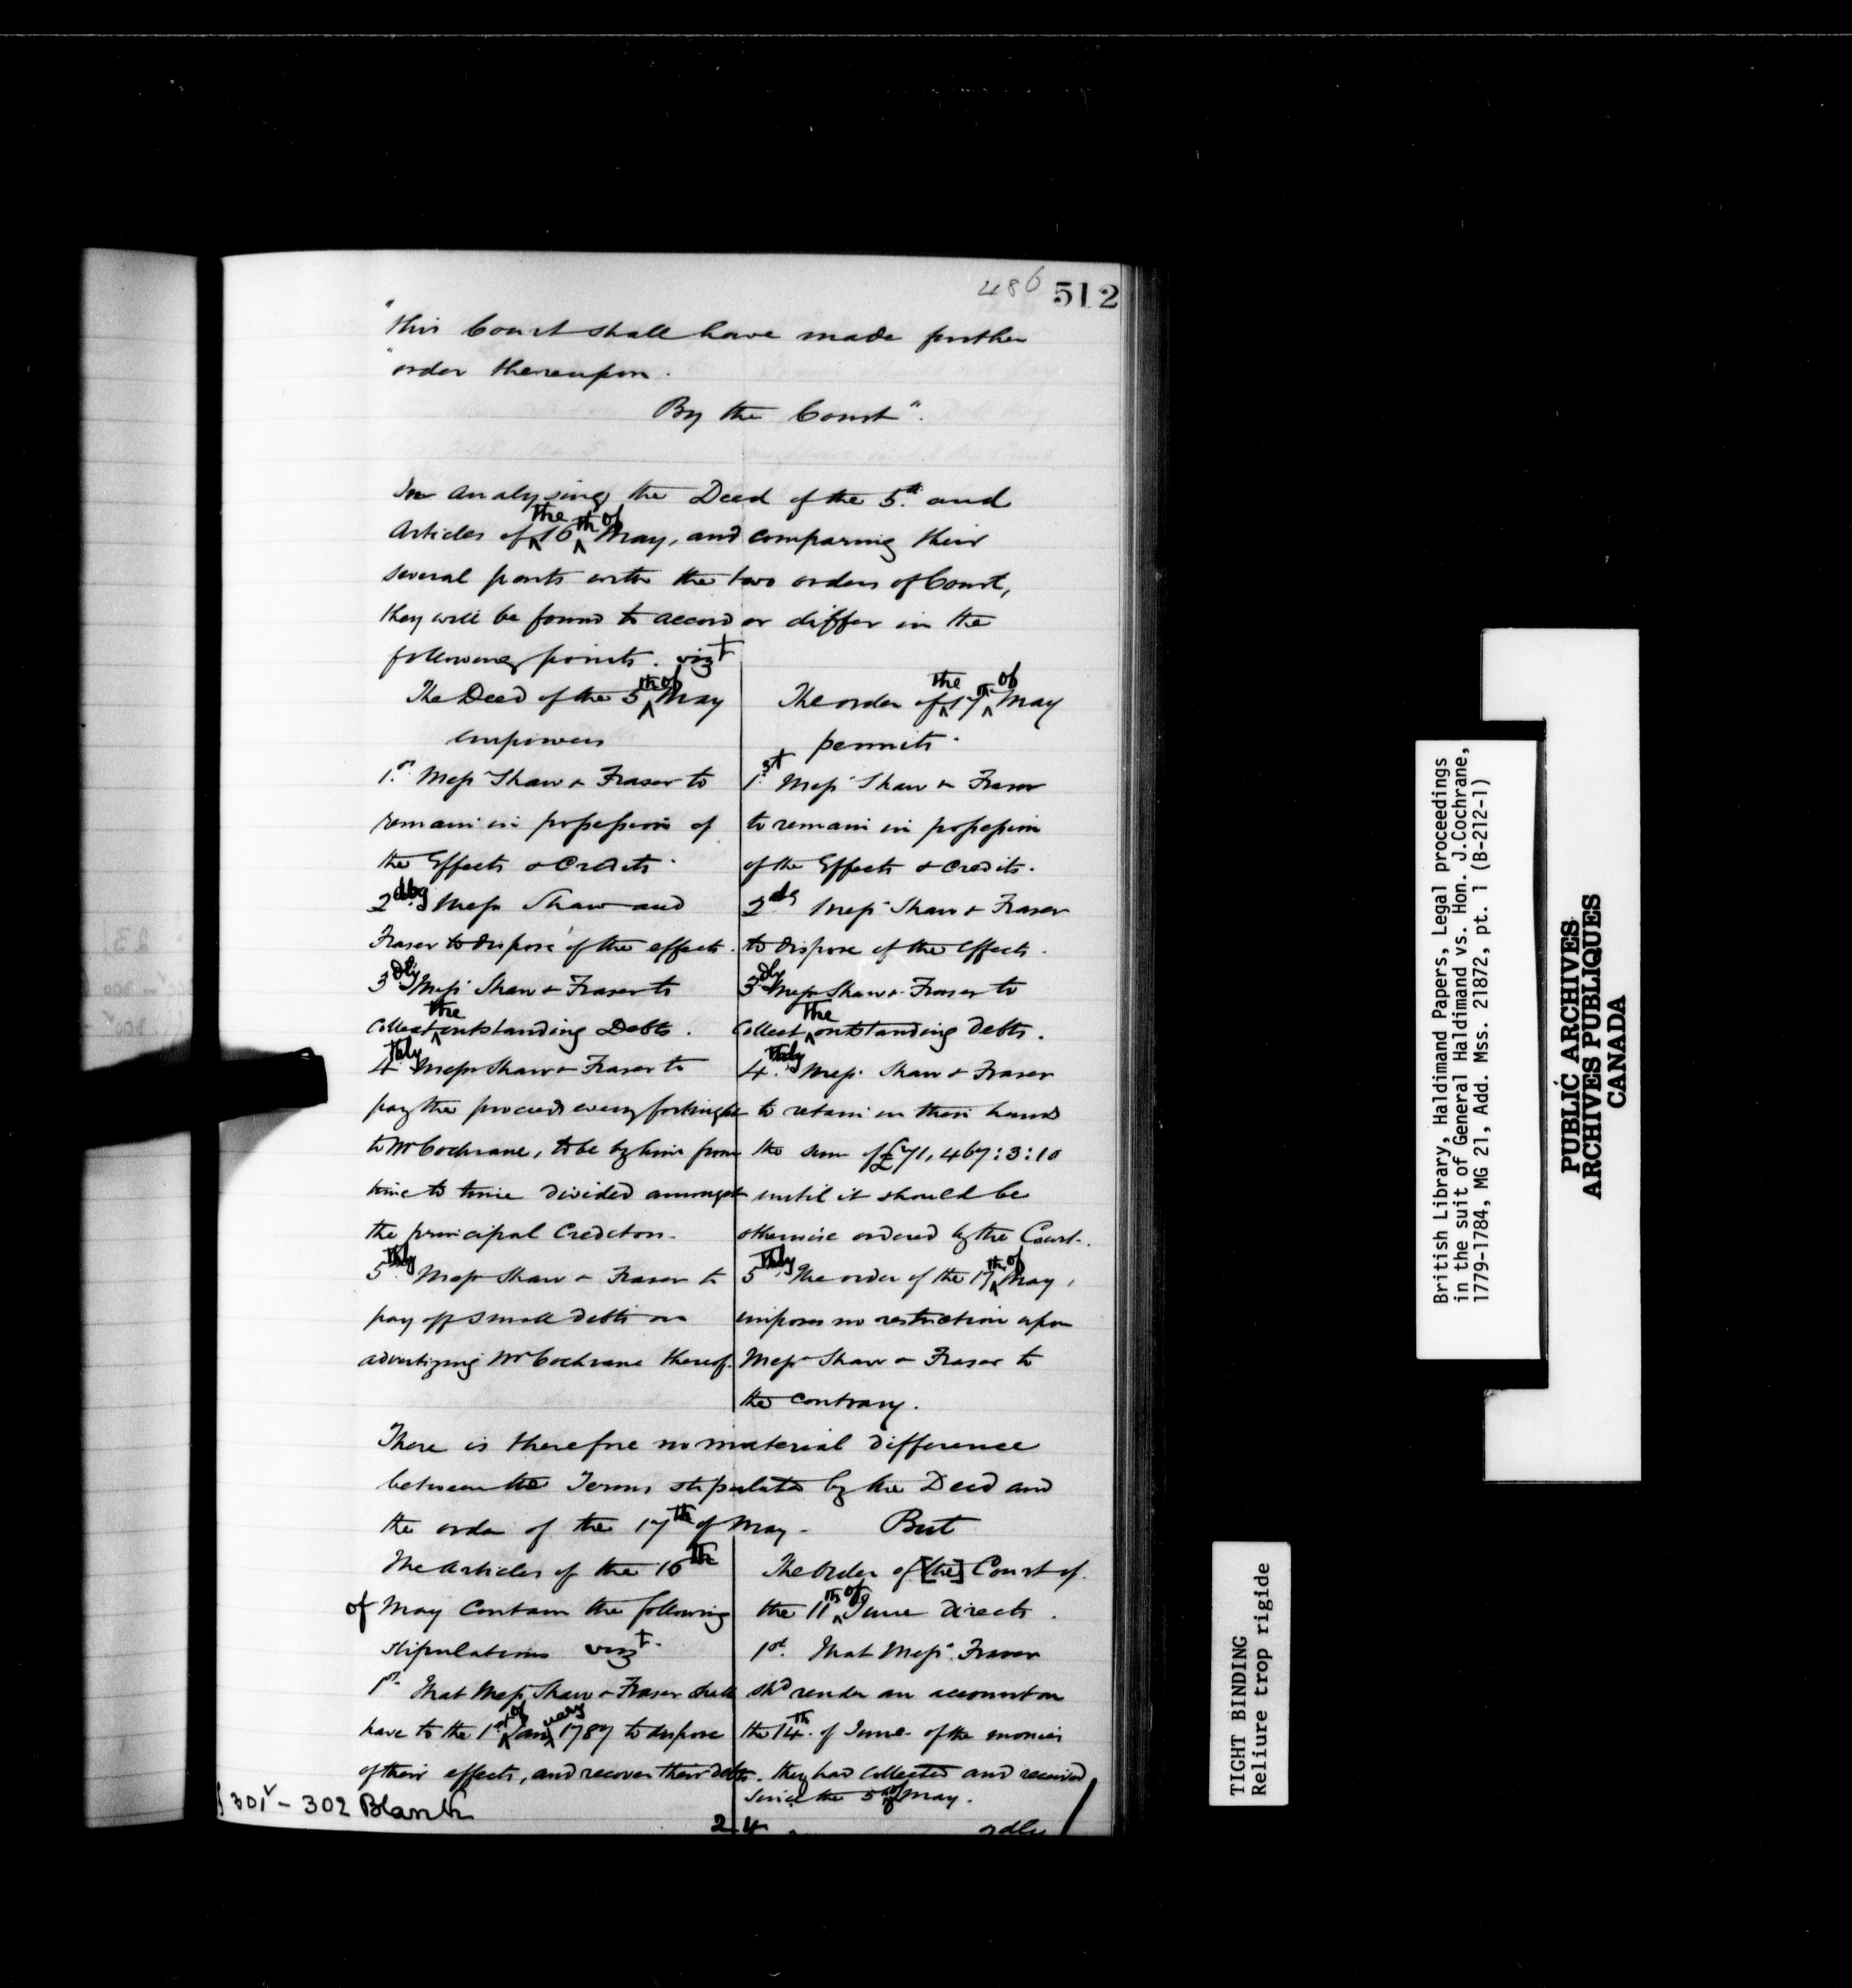 486 512
"this Court shall have made further
"order thereupon.
By the Court".
In analysing the Deed of the 5th and
Articles of the 16th of May, and comparing their
several points with the two orders of Court,
they will be found to accord or differ in the
following points. vizt
The Deed of the 5th of May
empowers
1st Messrs Shaw & Fraser to
remain in possession of
the Effects & Credits.
2dly Messrs Shaw and
Fraser to dispose of the effects.
3dly Messrs Shaw & Fraser to
collect the outstanding Debts.
4thly Messrs Shaw & Fraser to
pay the proceeds every fortnight
to Mr Cochrane, to be by him from
time to time divided amongst
the principal Creditors.
5thly Messrs Shaw & Fraser to
pay off small debts on
advertizing Mr Cochrane thereof.
The order of the 17th of May
permits.
1st Messrs Shaw & Fraser
to remain in possession
of the Effects & Credits.
2dly Messrs Shaw & Fraser
to dispose of the Effects.
3dly Messrs Shaw & Fraser to
collect the outstanding debts.
4thly Messrs Shaw & Fraser
to retain in their hands
the sum of £71,467:3:10
until it should be
otherwise ordered by the Court.
5thly The order of the 17th of May,
imposes no restriction upon
Messrs Shaw & Fraser to
the contrary.
There is therefore no material difference
between the Terms stipulated by the Deed and
the order of the 17th of May. But
The Articles of the 16th
of May contain the following
stipulations vizt.
1st That Messrs Shaw & Fraser shall
have to the 1st of January 1787 to dispose
of their effects, and recover their debts.
The Order of [the] Court of
the 11th of June directs.
1st. That Messrs Fraser
shd render an account on
the 14th of June of the monies
they had collected and received
since the 5th of May.
301v - 302 Blank
2dly
British Library, Haldimand Papers, Legal proceedings
in the suit of General Haldimand vs. Hon. J.Cochrane,
1779-1784, MG 21, Add. Mss. 21872, pt. 1 (B-212-1)
PUBLIC ARCHIVES
ARCHIVES PUBLIQUES
CANADA
TIGHT BINDING
Reliure trop rigide